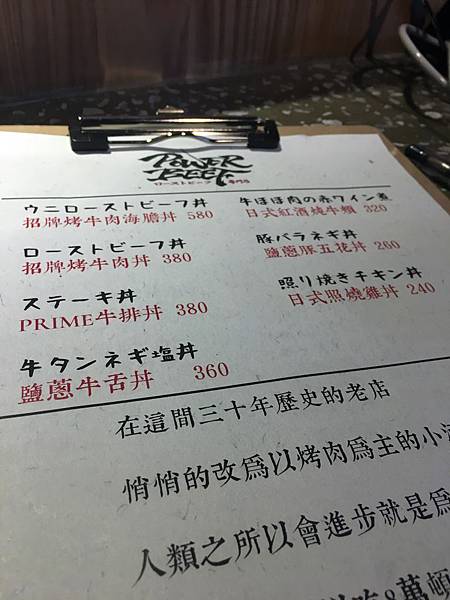 POWER
BEEF
ローストビーフ 専門店
ウニローストビーフ丼
招牌烤牛肉海膽丼 580
ローストビーフ丼
招牌烤牛肉丼 380
ステーキ丼
PRIME牛排丼 380
牛タンネギ塩丼
鹽蔥牛舌丼 360
牛ほほ肉の赤ワイン煮
日式紅酒燒牛頰 320
豚バラネギ丼
鹽蔥豚五花丼 260
照り焼きチキン丼
日式照燒雞丼 240
在這間三十年歷史的老店
悄悄的改為以烤肉為主的小
人類之所以會進步就是為
8萬頓